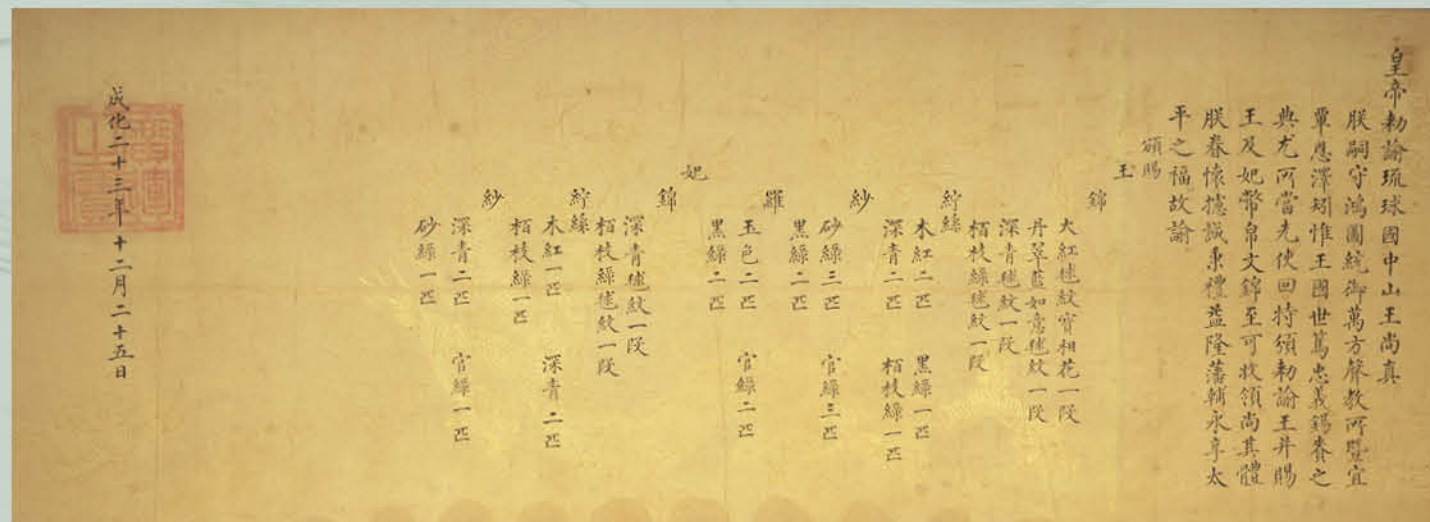 皇帝勑諭琉球國中山王尚真
朕嗣守鴻圖統御萬方聲教所曁宜
覃恩澤矧惟王國世篤忠義錫賚之
典尤所當先使回特頒勑諭王并賜
王及妃幣帛文錦至可收領尚其體
朕眷懷攄誠秉禮益隆藩輔永享太
平之福故諭
頒賜
王
錦
大紅毬紋寳相花一叚
丹翠藍如意毬紋一叚
深青毬紋一叚
栢枝綠毬紋一叚
紵絲
木紅二匹 黑綠一匹
深青二匹 栢枝綠一匹
紗
砂綠三匹 官綠三匹
黑綠二匹
羅
玉色二匹 官綠二匹
黑綠二匹
妃
錦
深青毬紋一叚
栢枝綠毬紋一叚
紵絲
木紅一匹 深青二匹
栢枝綠一匹
紗
深青二匹 官綠一匹
砂綠一匹
成化二十三年十二月二十五日